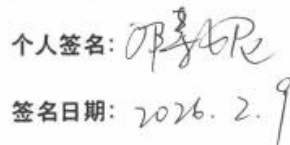 个人签名：
签名日期：2026.2.9